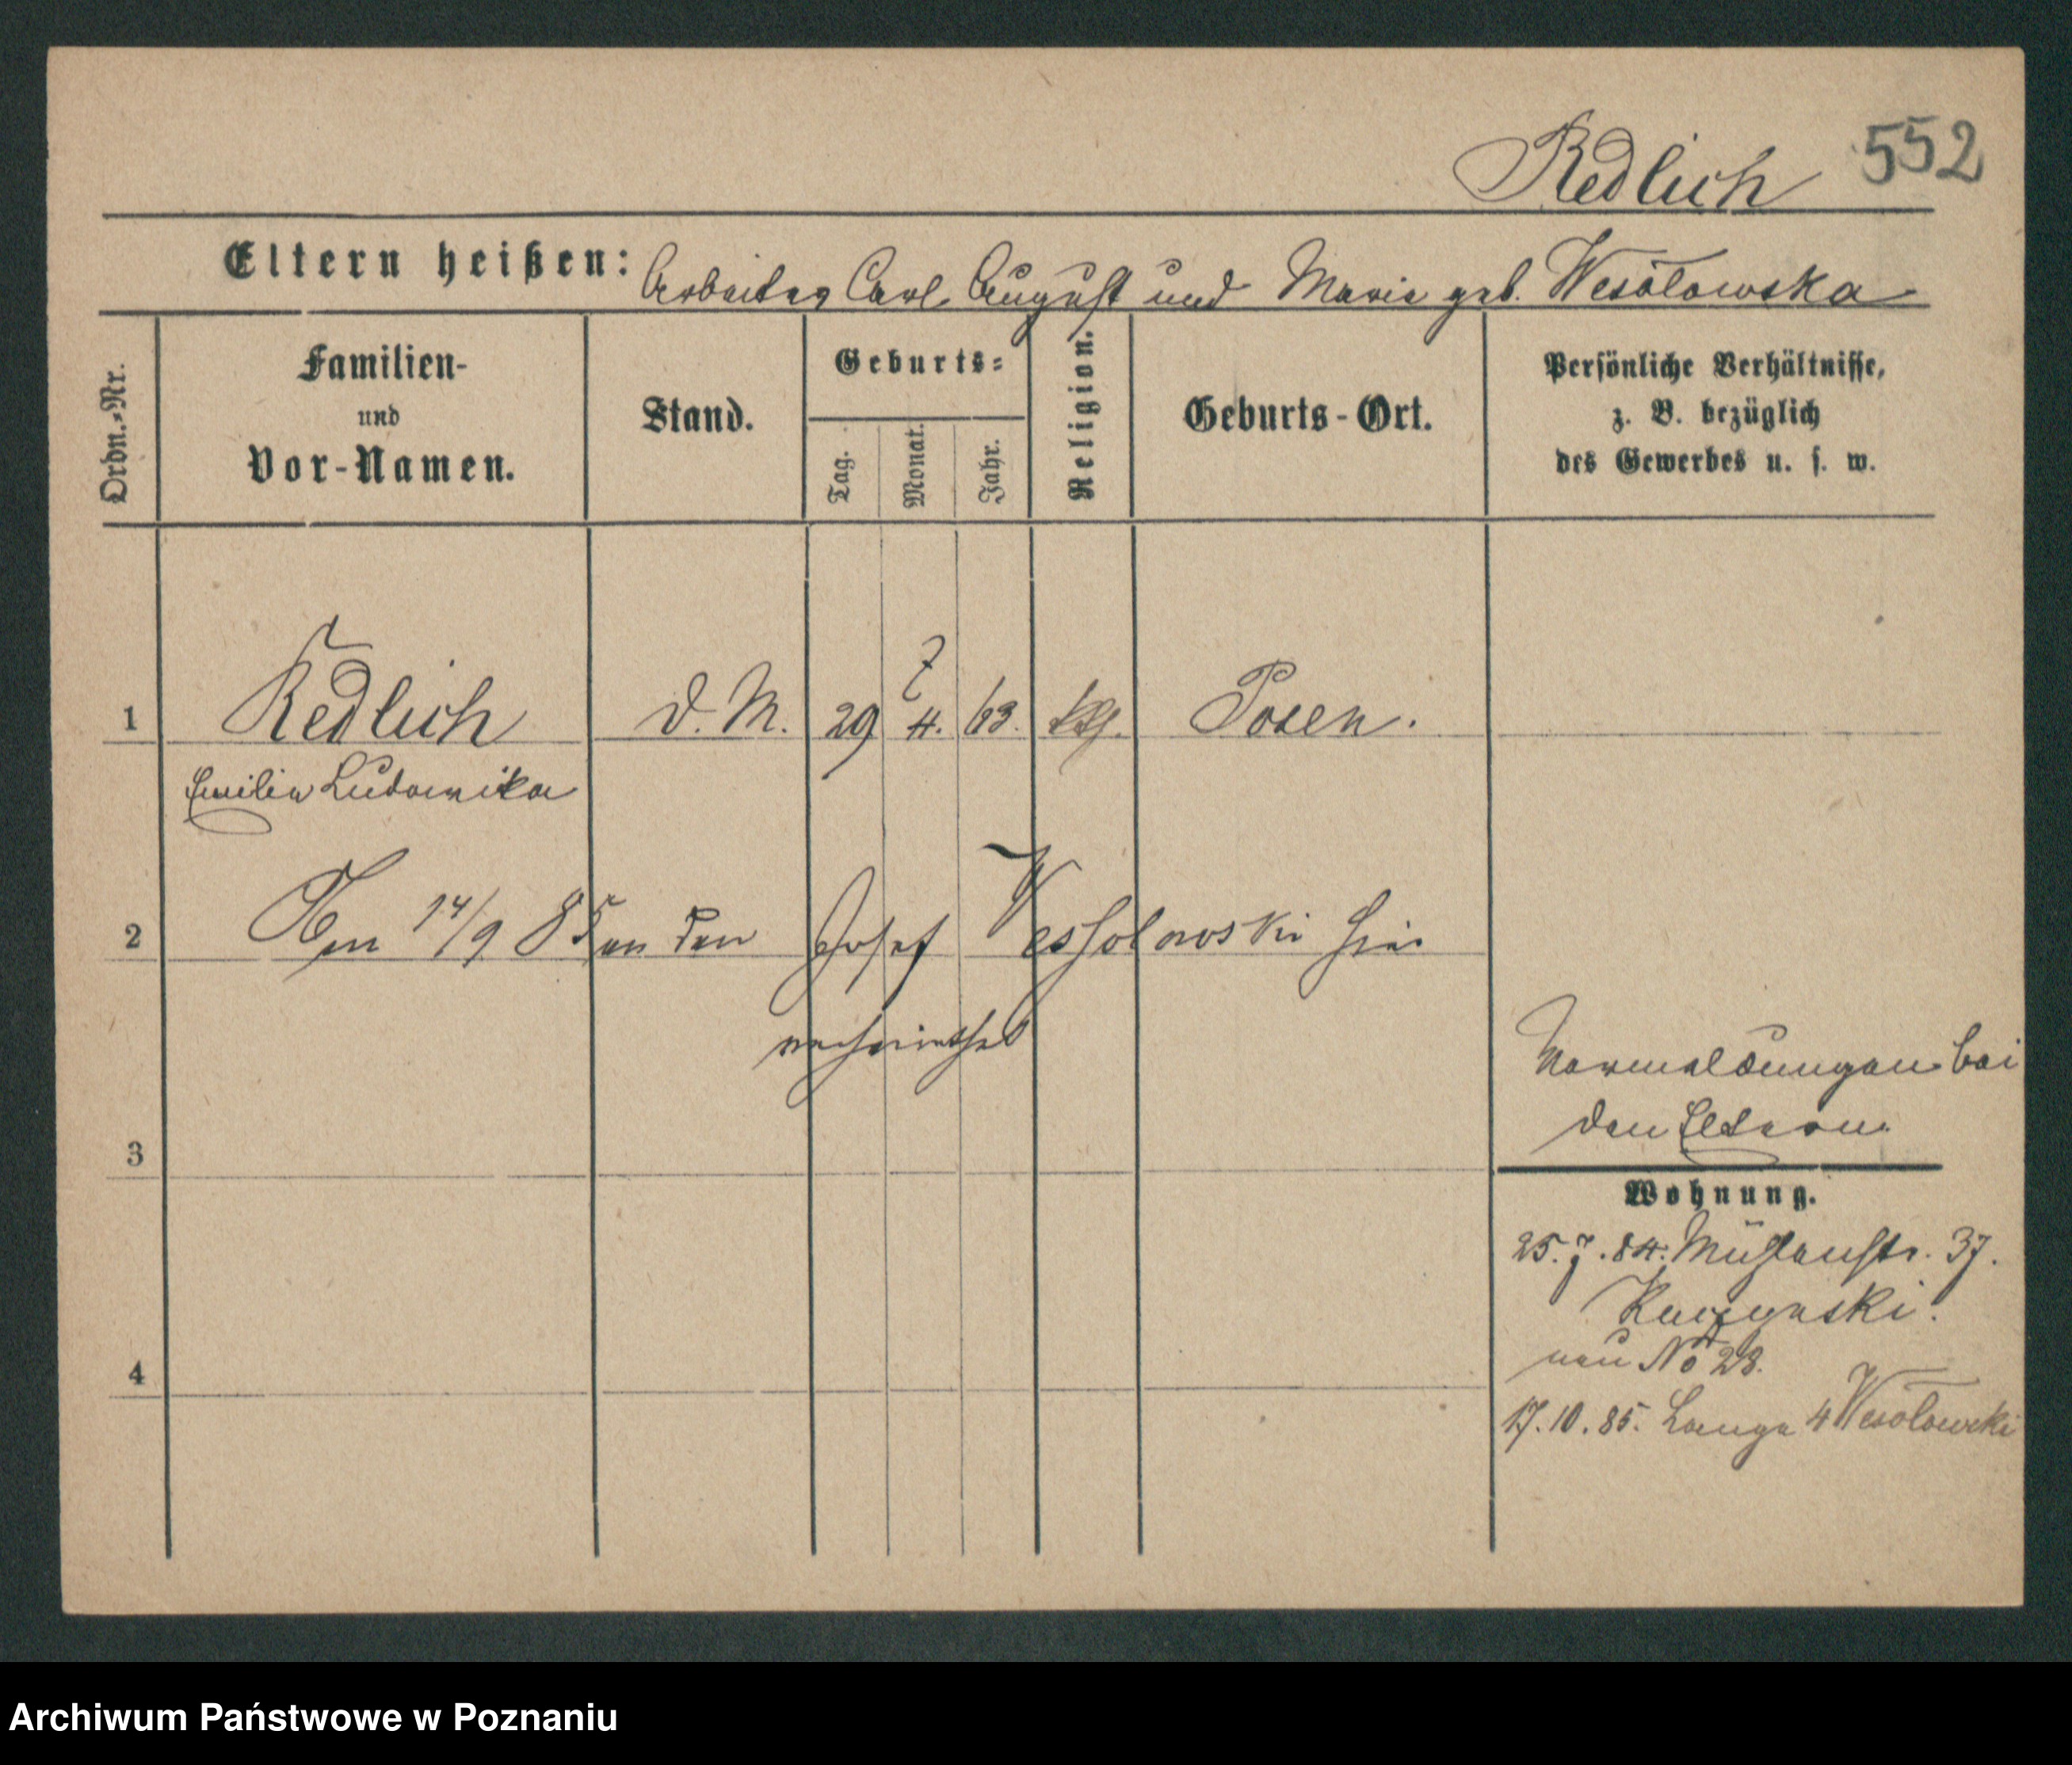 Redlich 552
Eltern heißen: Arbeiter Carl August und Maria geb. Wesołowska
Ordn.-Nr.
Familien-
und
Vor-Namen.
Stand.
Geburts-
Tag.
Monat.
Jahr.
Religion.
Geburts-Ort.
Persönliche Verhältnisse,
z. B. bezüglich
des Gewerbes u. s. w.
7
1 Redlich d. M. 29 4. 63. kth. Posen.
Emilia Ludowika
2 Am 14/9 85 an den Josef Wessolowski hier
verheirathet
Vormeldungen bei
den Eltern.
3
Wohnung.
25.7.84. Mühlenstr. 37.
neu No 28.
4
17.10.85. Lange 4 Wesołowski
Archiwum Państwowe w Poznaniu